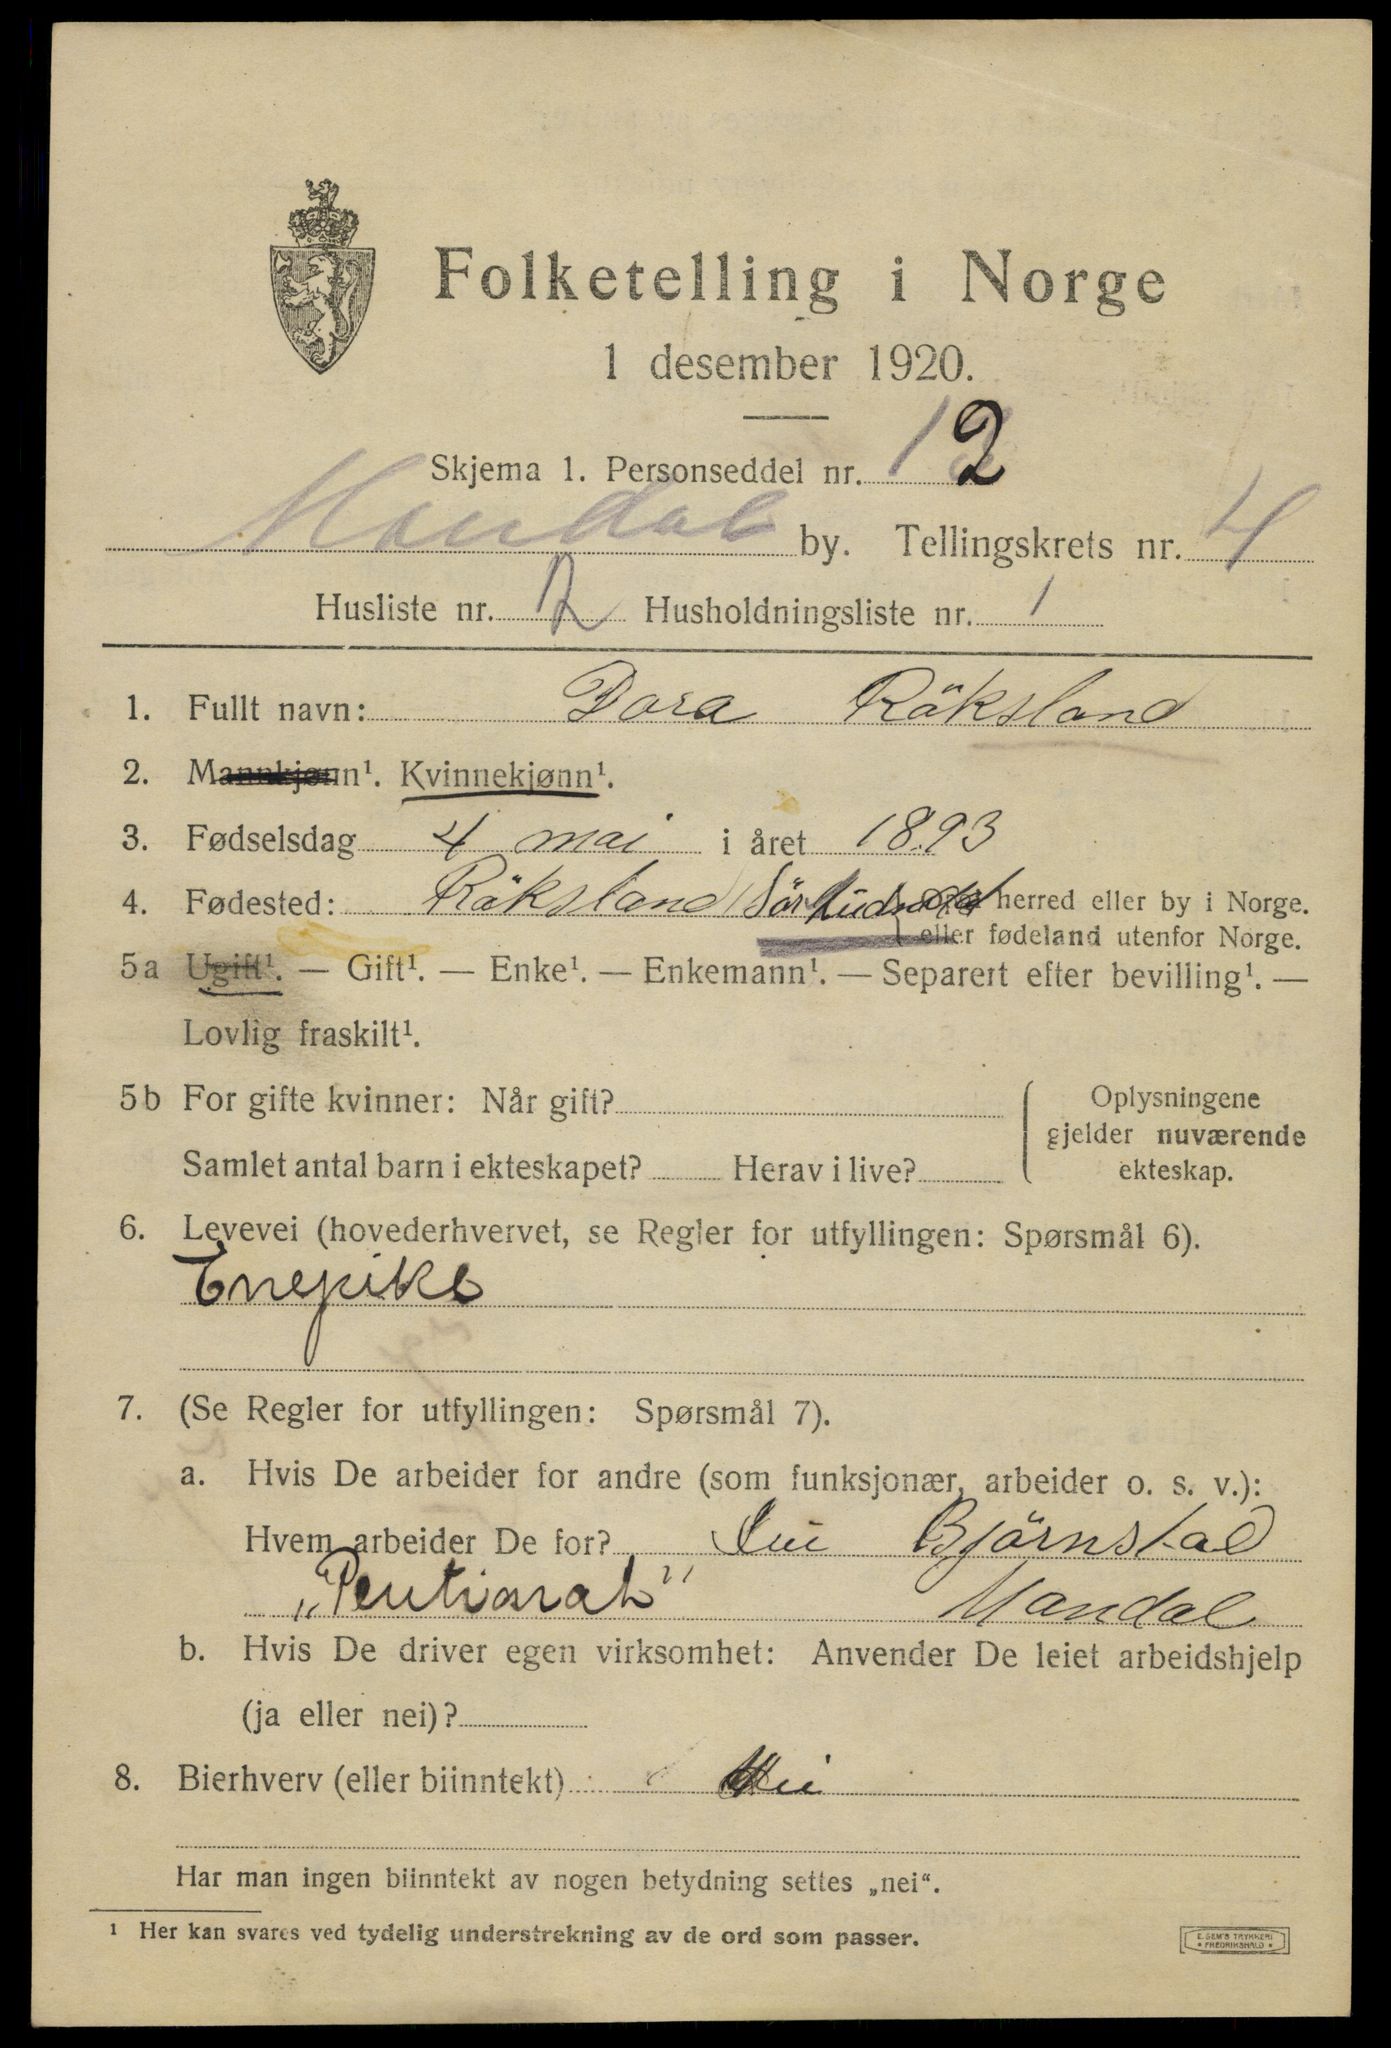 Folketelling i Norge
1 desember 1920.
Skjema 1. Personseddel nr. 2
Mandal by. Tellingskrets nr. 4
Husliste nr. 12 Husholdningsliste nr. 1
1. Fullt navn: Dora Röksland
2. Mannkjønn¹. Kvinnekjønn¹.
3. Fødselsdag 4 mai i året 1893
4. Fødested: Röksland Sör Audnedal herred eller by i Norge.
eller fødeland utenfor Norge.
5a Ugift¹. — Gift¹. — Enke¹. — Enkemann¹. — Separert efter bevilling¹. —
Lovlig fraskilt¹.
5b For gifte kvinner: Når gift?
Oplysningene
gjelder nuværende
ekteskap.
Samlet antal barn i ekteskapet? Herav i live?
6. Levevei (hovederhvervet, se Regler for utfyllingen: Spørsmål 6).
Enepike
7. (Se Regler for utfyllingen: Spørsmål 7).
a. Hvis De arbeider for andre (som funksjonær, arbeider o. s. v.):
Hvem arbeider De for? Björnstad
Mandal
b. Hvis De driver egen virksomhet: Anvender De leiet arbeidshjelp
(ja eller nei)?
8. Bierhverv (eller biinntekt) Nei
Har man ingen biinntekt av nogen betydning settes „nei“.
¹ Her kan svares ved tydelig understrekning av de ord som passer.
E. SEM'S TRYKKERI
• FREDRIKSHALD •